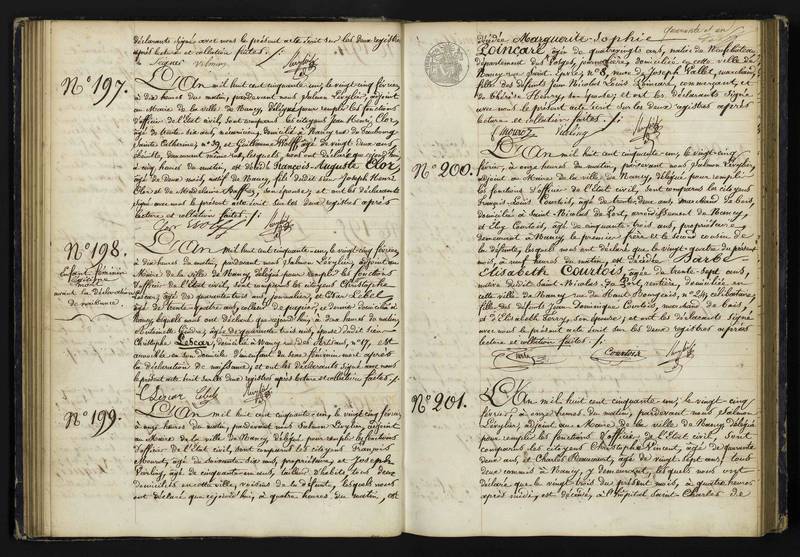 déclarants signé avec nous le présent acte écrit sur les deux registres
après lecture et collation faites. /.
N° 197.
L'An mil huit cent cinquante-un, le vingt cinq février,
à dix heures du matin, pardevant nous Salmon Lévylier, adjoint
au Maire de la ville de Nancy, délégué pour remplir les fonctions
d'officier de l'État civil, sont comparus les citoyens Jean Henry Clor,
âgé de trente six ans, domicilié à Nancy rue du faubourg
Sainte Catherine, n° 39, et Guillaume Wolff, âgé de vingt deux ans
demeurant même rue, lesquels nous ont déclaré que
heures du matin, est décédé François Auguste Clor,
âgé de deux mois, natif de Nancy, fils dudit sieur Joseph Henry
Clor et de Magdeleine son épouse; et ont les déclarants
signé avec nous le présent acte écrit sur les deux registres après
lecture et collation faites. /.
Clor Wolff
N° 198.
Enfant féminin
légitime
mort
avant la déclaration
de naissance.
L'An mil huit cent cinquante-un, le vingt cinq février,
à dix heures du matin, pardevant nous Salmon Lévylier, adjoint au
Maire de la ville de Nancy, délégué pour remplir les fonctions
d'officier de l'État civil, sont comparus les citoyens Christophe
Lescar, âgé de quarante trois ans, journalier, et Jean Lebel
âgé de trente-quatre ans, colleur de papier, domiciliés à
Nancy, lesquels nous ont déclaré que à deux heures du matin,
Antoinette âgée de quarante trois ans, épouse dudit sieur
Christophe Lescar, domiciliée à Nancy rue des Artisans, n° 17, est
accouchée en son domicile d'un enfant du sexe féminin mort après
la déclaration de naissance, et ont les déclarants signé avec nous
le présent acte écrit sur les deux registres après lecture et collation faites. /.
Lescar Lebel
N° 199.
L'An mil huit cent cinquante-un, le vingt cinq février,
à onze heures du matin, pardevant nous Salmon Lévylier, adjoint
au Maire de la ville de Nancy, délégué pour remplir les fonctions
d'officier de l'État civil, sont comparus les citoyens François
âgé de soixante six ans, propriétaire, et Joseph
âgé de cinquante-un ans, tailleur d'habits, tous deux
domiciliés en cette ville, voisins de la défunte, lesquels nous
ont déclaré que à quatre heures du matin, est
quarante et un
décédée Marguerite-Sophie
Poincaré, âgée de quatrevingts ans, native de Neufchâteau,
département des Vosges, domiciliée en cette ville de
Nancy rue Saint N° 8, veuve de Joseph Vallet,
fille des défunts Jean Nicolas Louis Poincaré, commerçant, et
de Thérèse Henry, son épouse; et ont les déclarants signé
avec nous le présent acte écrit sur les deux registres après
lecture et collation faites. /.
N° 200.
L'An mil huit cent cinquante-un, le vingt-cinq
février, à onze heures du matin, pardevant nous Salmon Lévylier,
adjoint au Maire de la ville de Nancy, délégué pour remplir
les fonctions d'officier de l'État civil, sont comparus les citoyens
François Louis Courtois, âgé de trente deux ans, marchand de bois,
domicilié à Saint-Nicolas du Port, arrondissement de Nancy,
et Courtois, âgé de cinquante trois ans, propriétaire,
demeurant à Nancy, le premier frère et le second cousin de
la défunte, lesquels nous ont déclaré que le vingt quatre du présent
mois, à neuf heures du matin, est décédée Barbe-
Elisabeth Courtois, âgée de trente-sept ans,
native dudit Saint-Nicolas-du-Port, rentière, domiciliée en
cette ville de Nancy rue n° 24, célibataire,
fille des défunts Dominique Courtois, marchand de bois,
et d'Elisabeth son épouse; et ont les déclarants signé
avec nous le présent acte écrit sur les deux registres après
lecture et collation faites. /.
Courtois
N° 201.
L'An mil huit cent cinquante-un, le vingt-cinq
février, à onze heures du matin, pardevant nous Salmon
Lévylier, adjoint au Maire de la ville de Nancy, délégué
pour remplir les fonctions d'officier de l'État civil, sont
comparus les citoyens Christophe Vincent, âgé de quarante
deux ans, et Charles Beaumont, âgé de vingt-sept ans, tous
deux commis à Nancy y demeurant, lesquels nous ont
déclaré que le vingt trois du présent mois, à quatre heures
après midi, est décédée, à l'Hôpital Saint-Charles de